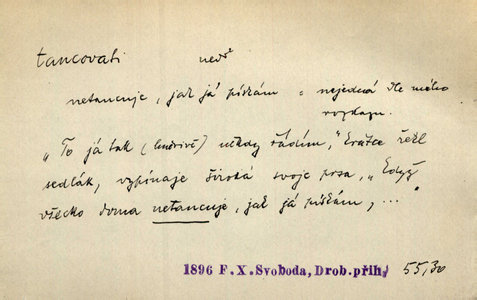 tancovati ned.
netancuje, jak já pískám = nejedná dle mého
rozkazu.
„To já tak (hněvivě) někdy řádím,“ krátce řekl
sedlák, vzpínaje široká svoje prsa, „Když
všecko doma netancuje, jak já pískám, ...“
1896 F. X. Svoboda, Drob. příh. 55, 30